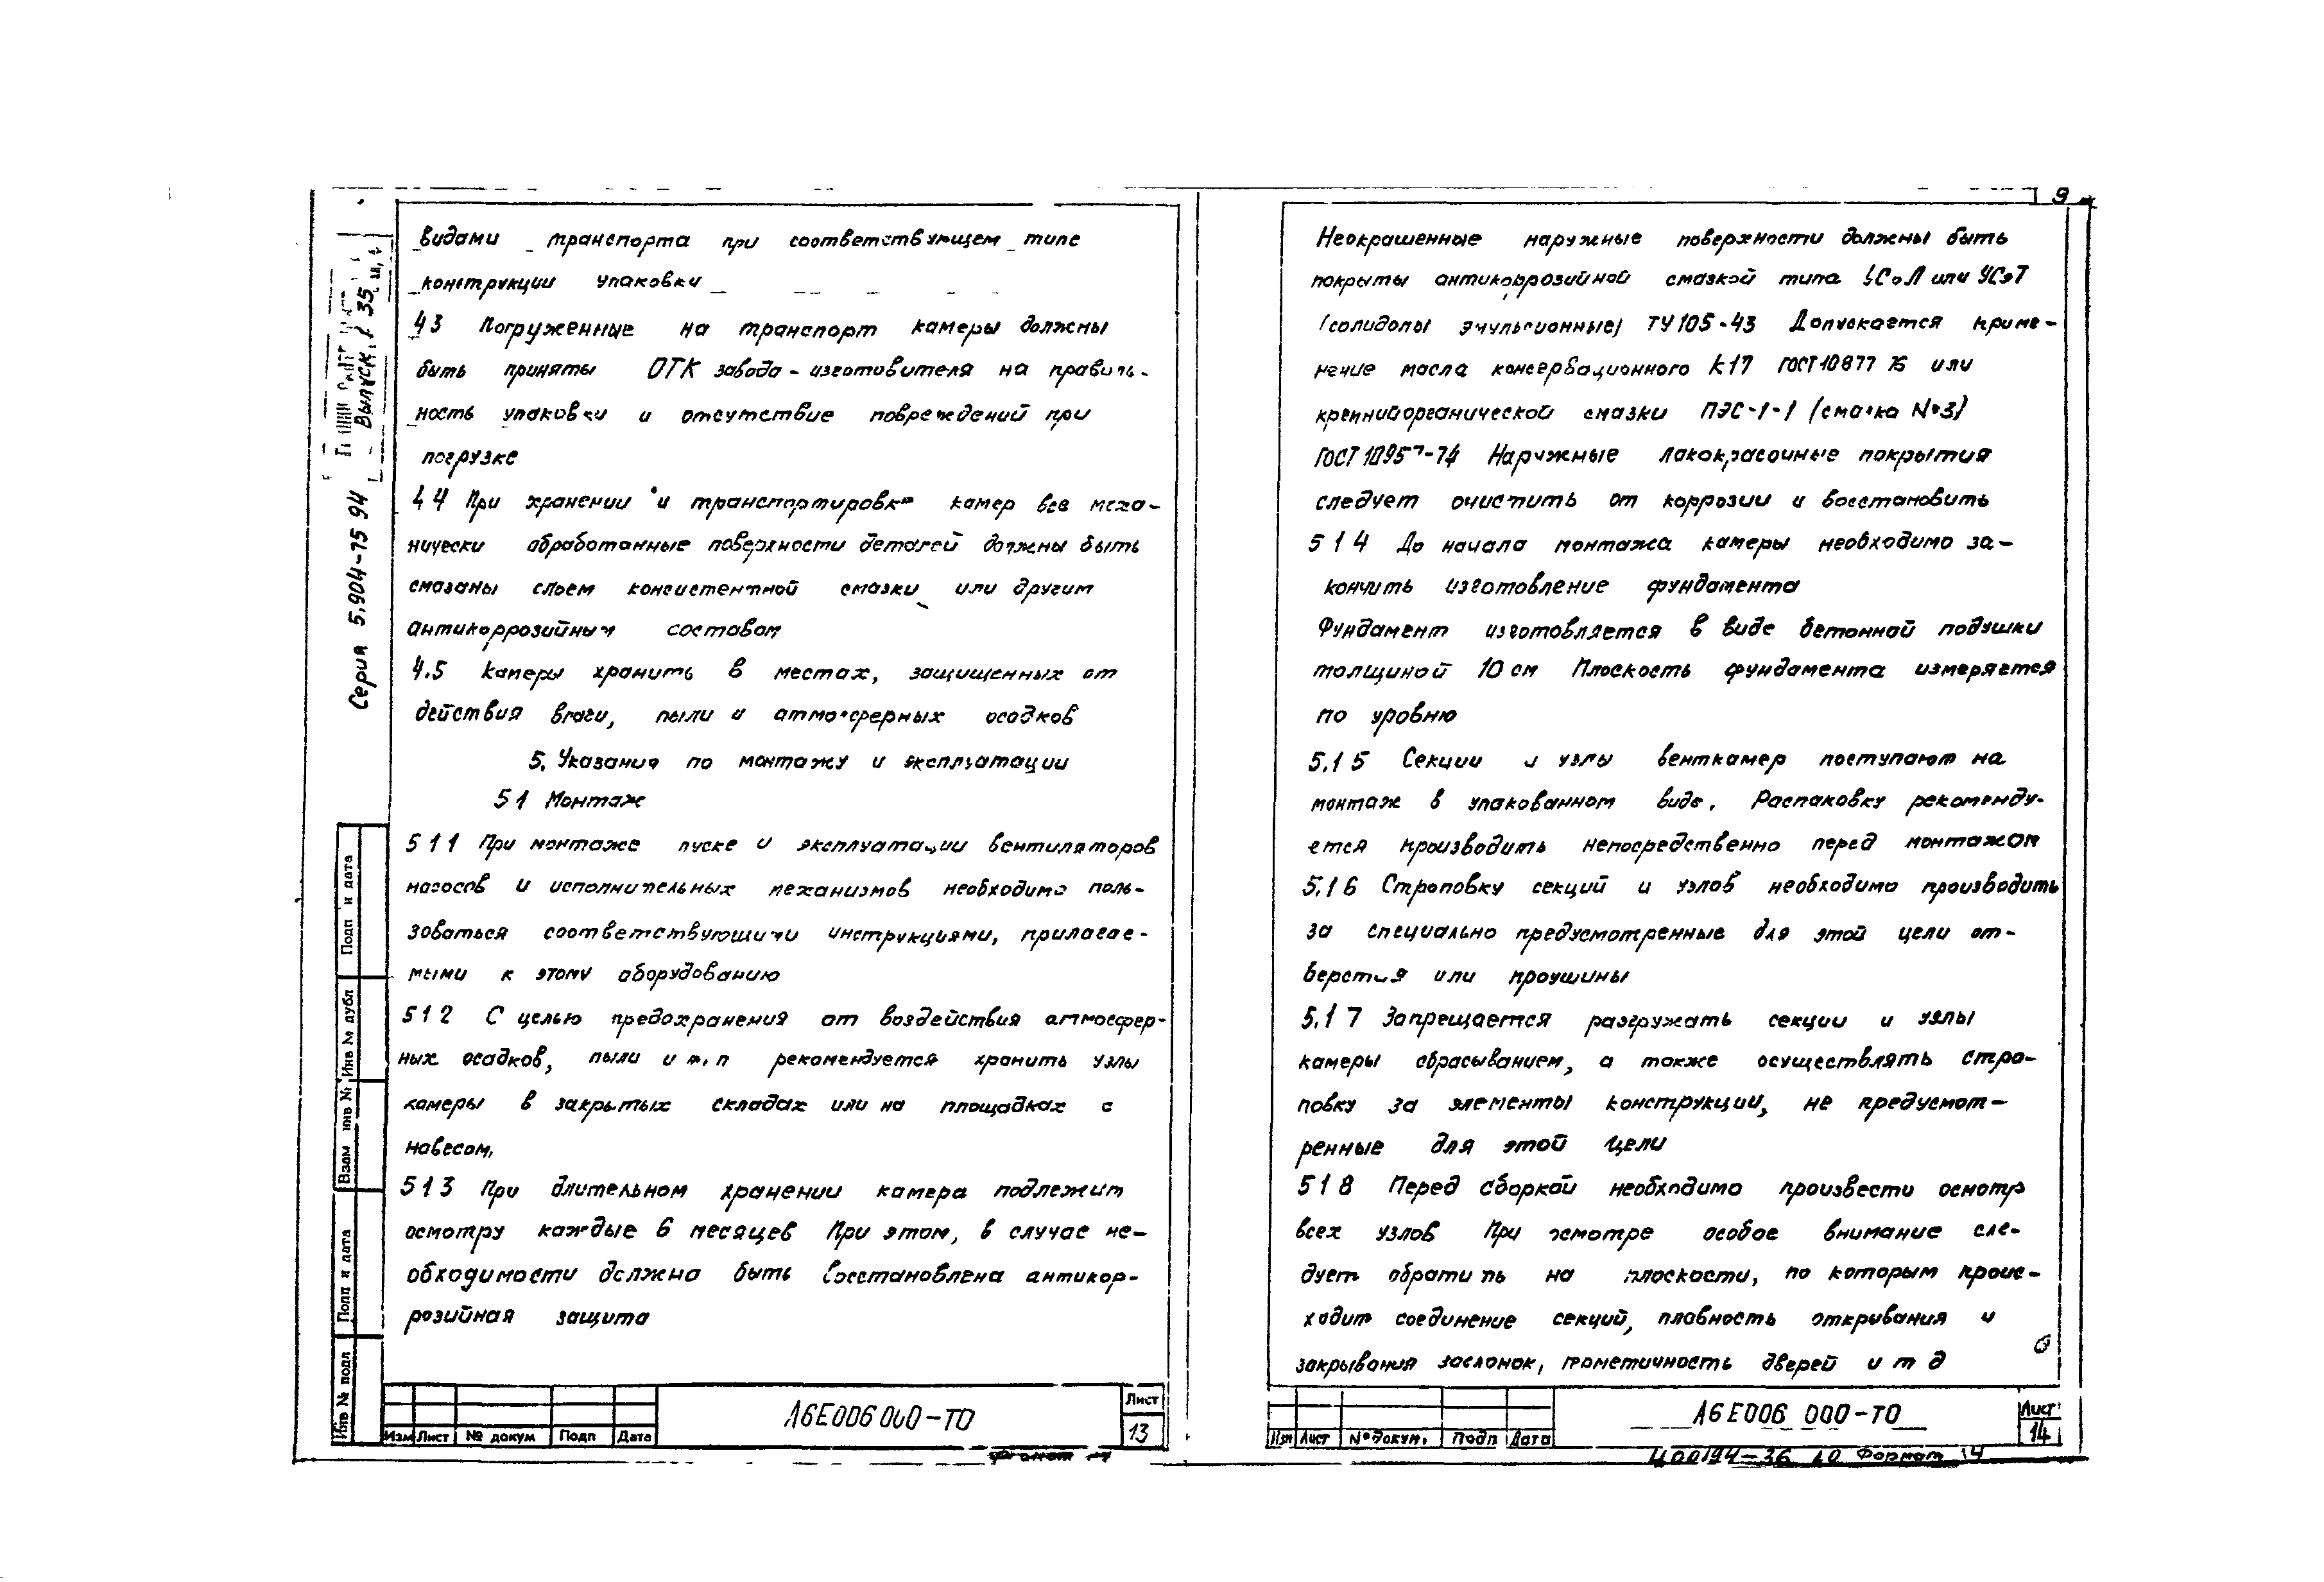 9
видами транспорта при соответствующем типе
конструкции упаковки
4 3 Погруженные на транспорт камеры должны
быть приняты ОТК завода - изготовителя на правиль-
ность упаковки и отсутствие повреждений при
погрузке
4 4 При хранении и транспортировке камер все меха-
нически обработанные поверхности деталей должны быть
смазаны слоем консистентной смазки или другим
антикоррозийным составом
4.5 Камеры хранить в местах, защищенных от
действия влаги, пыли и атмосферных осадков
5. Указания по монтажу и эксплуатации
5 1 Монтаж
5 1 1 При монтаже пуске и эксплуатации вентиляторов
насосов и исполнительных механизмов необходимо поль-
зоваться соответствующими инструкциями, прилагае-
мыми к этому оборудованию
5 1 2 С целью предохранения от воздействия атмосфер-
ных осадков, пыли и т.п рекомендуется хранить узлы
камеры в закрытых складах или на площадках с
навесом.
5 1 3 При длительном хранении камера подлежит
осмотру каждые 6 месяцев При этом, в случае не-
обходимости должна быть восстановлена антикор-
розийная защита
А6Е006 000-ТО
Лист
13
Изм Лист № докум Подп Дата
Формат
Неокрашенные наружные поверхности должны быть
покрыты антикоррозийной смазкой типа или
(солидолы эмульсионные) ТУ 105-43 Допускается приме-
нение масла консервационного К17 ГОСТ 10877 76 или
кремнийорганической смазки ПЭС-1-1 (смазка №3)
ГОСТ 10957-74 Наружные лакокрасочные покрытия
следует очистить от коррозии и восстановить
5 1 4 До начала монтажа камеры необходимо за-
кончить изготовление фундамента
Фундамент изготовляется в виде бетонной подушки
толщиной 10 см Плоскость фундамента измеряется
по уровню
5.1 5 Секции и узлы венткамер поступают на
монтаж в упакованном виде. Распаковку рекоменду-
ется производить непосредственно перед монтажом
5.1 6 Строповку секций и узлов необходимо производить
за специально предусмотренные для этой цели от-
верстия или проушины
5.1 7 Запрещается разгружать секции и узлы
камеры сбрасыванием, а также осуществлять стро-
повку за элементы конструкции, не предусмот-
ренные для этой цели
5 1 8 Перед сборкой необходимо произвести осмотр
всех узлов При осмотре особое внимание сле-
дует обратить на плоскости, по которым проис-
ходит соединение секций, плавность открывания и
закрывания заслонок, герметичность дверей и т д
А6Е006 000-ТО
Лист
14
Изм Лист № докум. Подп Дата
Ц00194-36 10 Формат
Серия 5.904-75 94
Выпуск 1 35
Подп и дата
Инв № дубл
Взам инв №
Подп и дата
Инв № подл